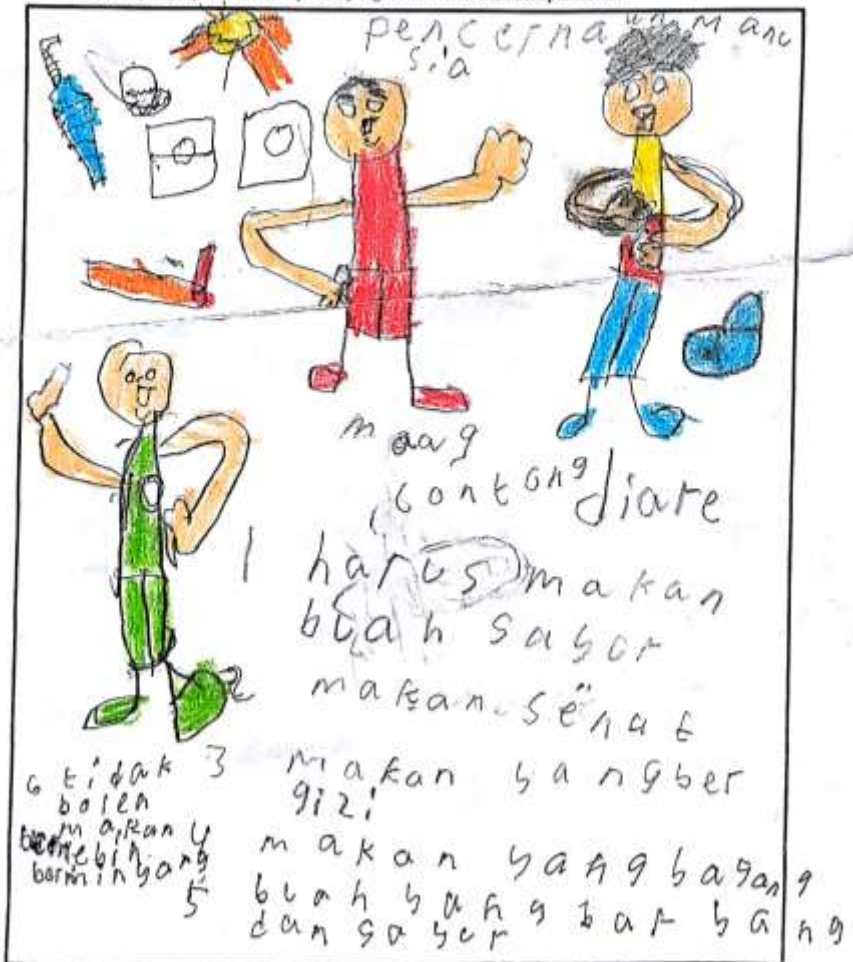 pencernaan manu
sia
maag
contong diare
1 harus makan
buah sayur
2 makan sehat
3 makan yang ber
gizi
4 makan yang bayang
5 buah yang bar yang
dan sayer
6 tidak
boleh
makan
berlebih
berminyang